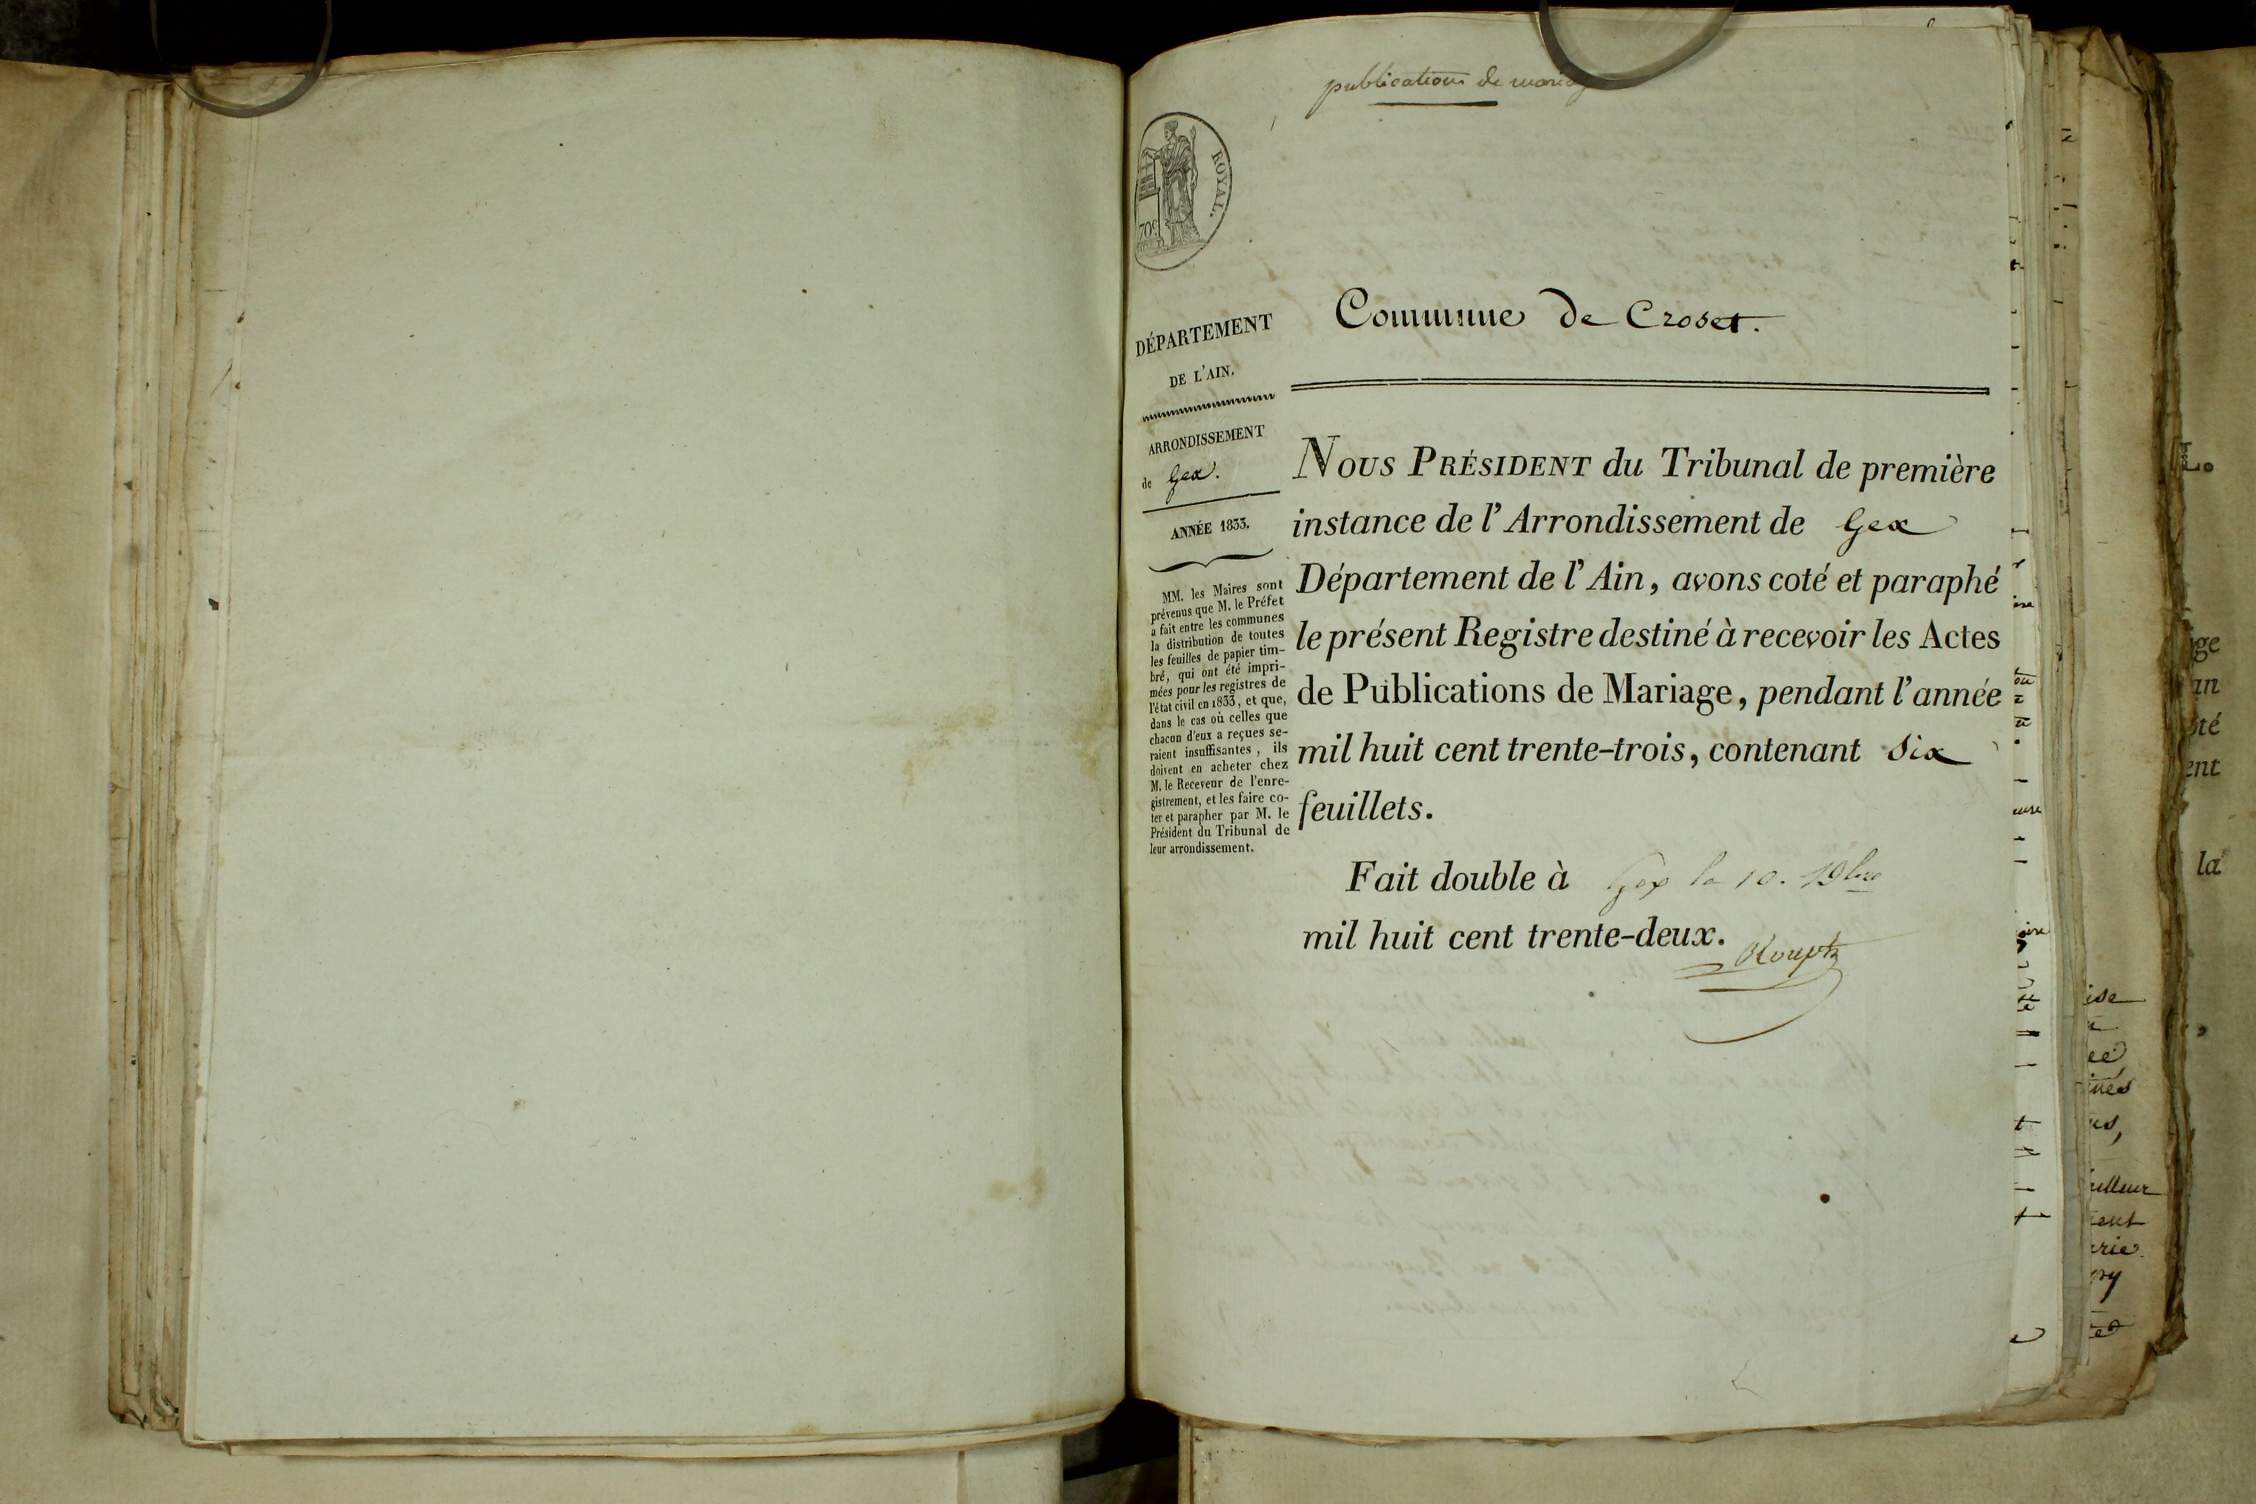 publications de
ROYAL.
70c
Commune de Croset.
DÉPARTEMENT
DE L'AIN.
ARRONDISSEMENT
de Gex.
ANNÉE 1833.
MM. les Maires sont
prévenus que M. le Préfet
a fait entre les communes
la distribution de toutes
les feuilles de papier tim-
bré, qui ont été impri-
mées pour les registres de
l'état civil en 1833, et que,
dans le cas où celles que
chacun d'eux a reçues se-
raient insuffisantes, ils
doivent en acheter chez
M. le Receveur de l'enre-
gistrement, et les faire co-
ter et parapher par M. le
Président du Tribunal de
leur arrondissement.
NOUS PRÉSIDENT du Tribunal de première
instance de l'Arrondissement de Gex
Département de l'Ain, avons coté et paraphé
le présent Registre destiné à recevoir les Actes
de Publications de Mariage, pendant l'année
mil huit cent trente-trois, contenant six
feuillets.
Fait double à Gex le 10. Xbre
mil huit cent trente-deux.